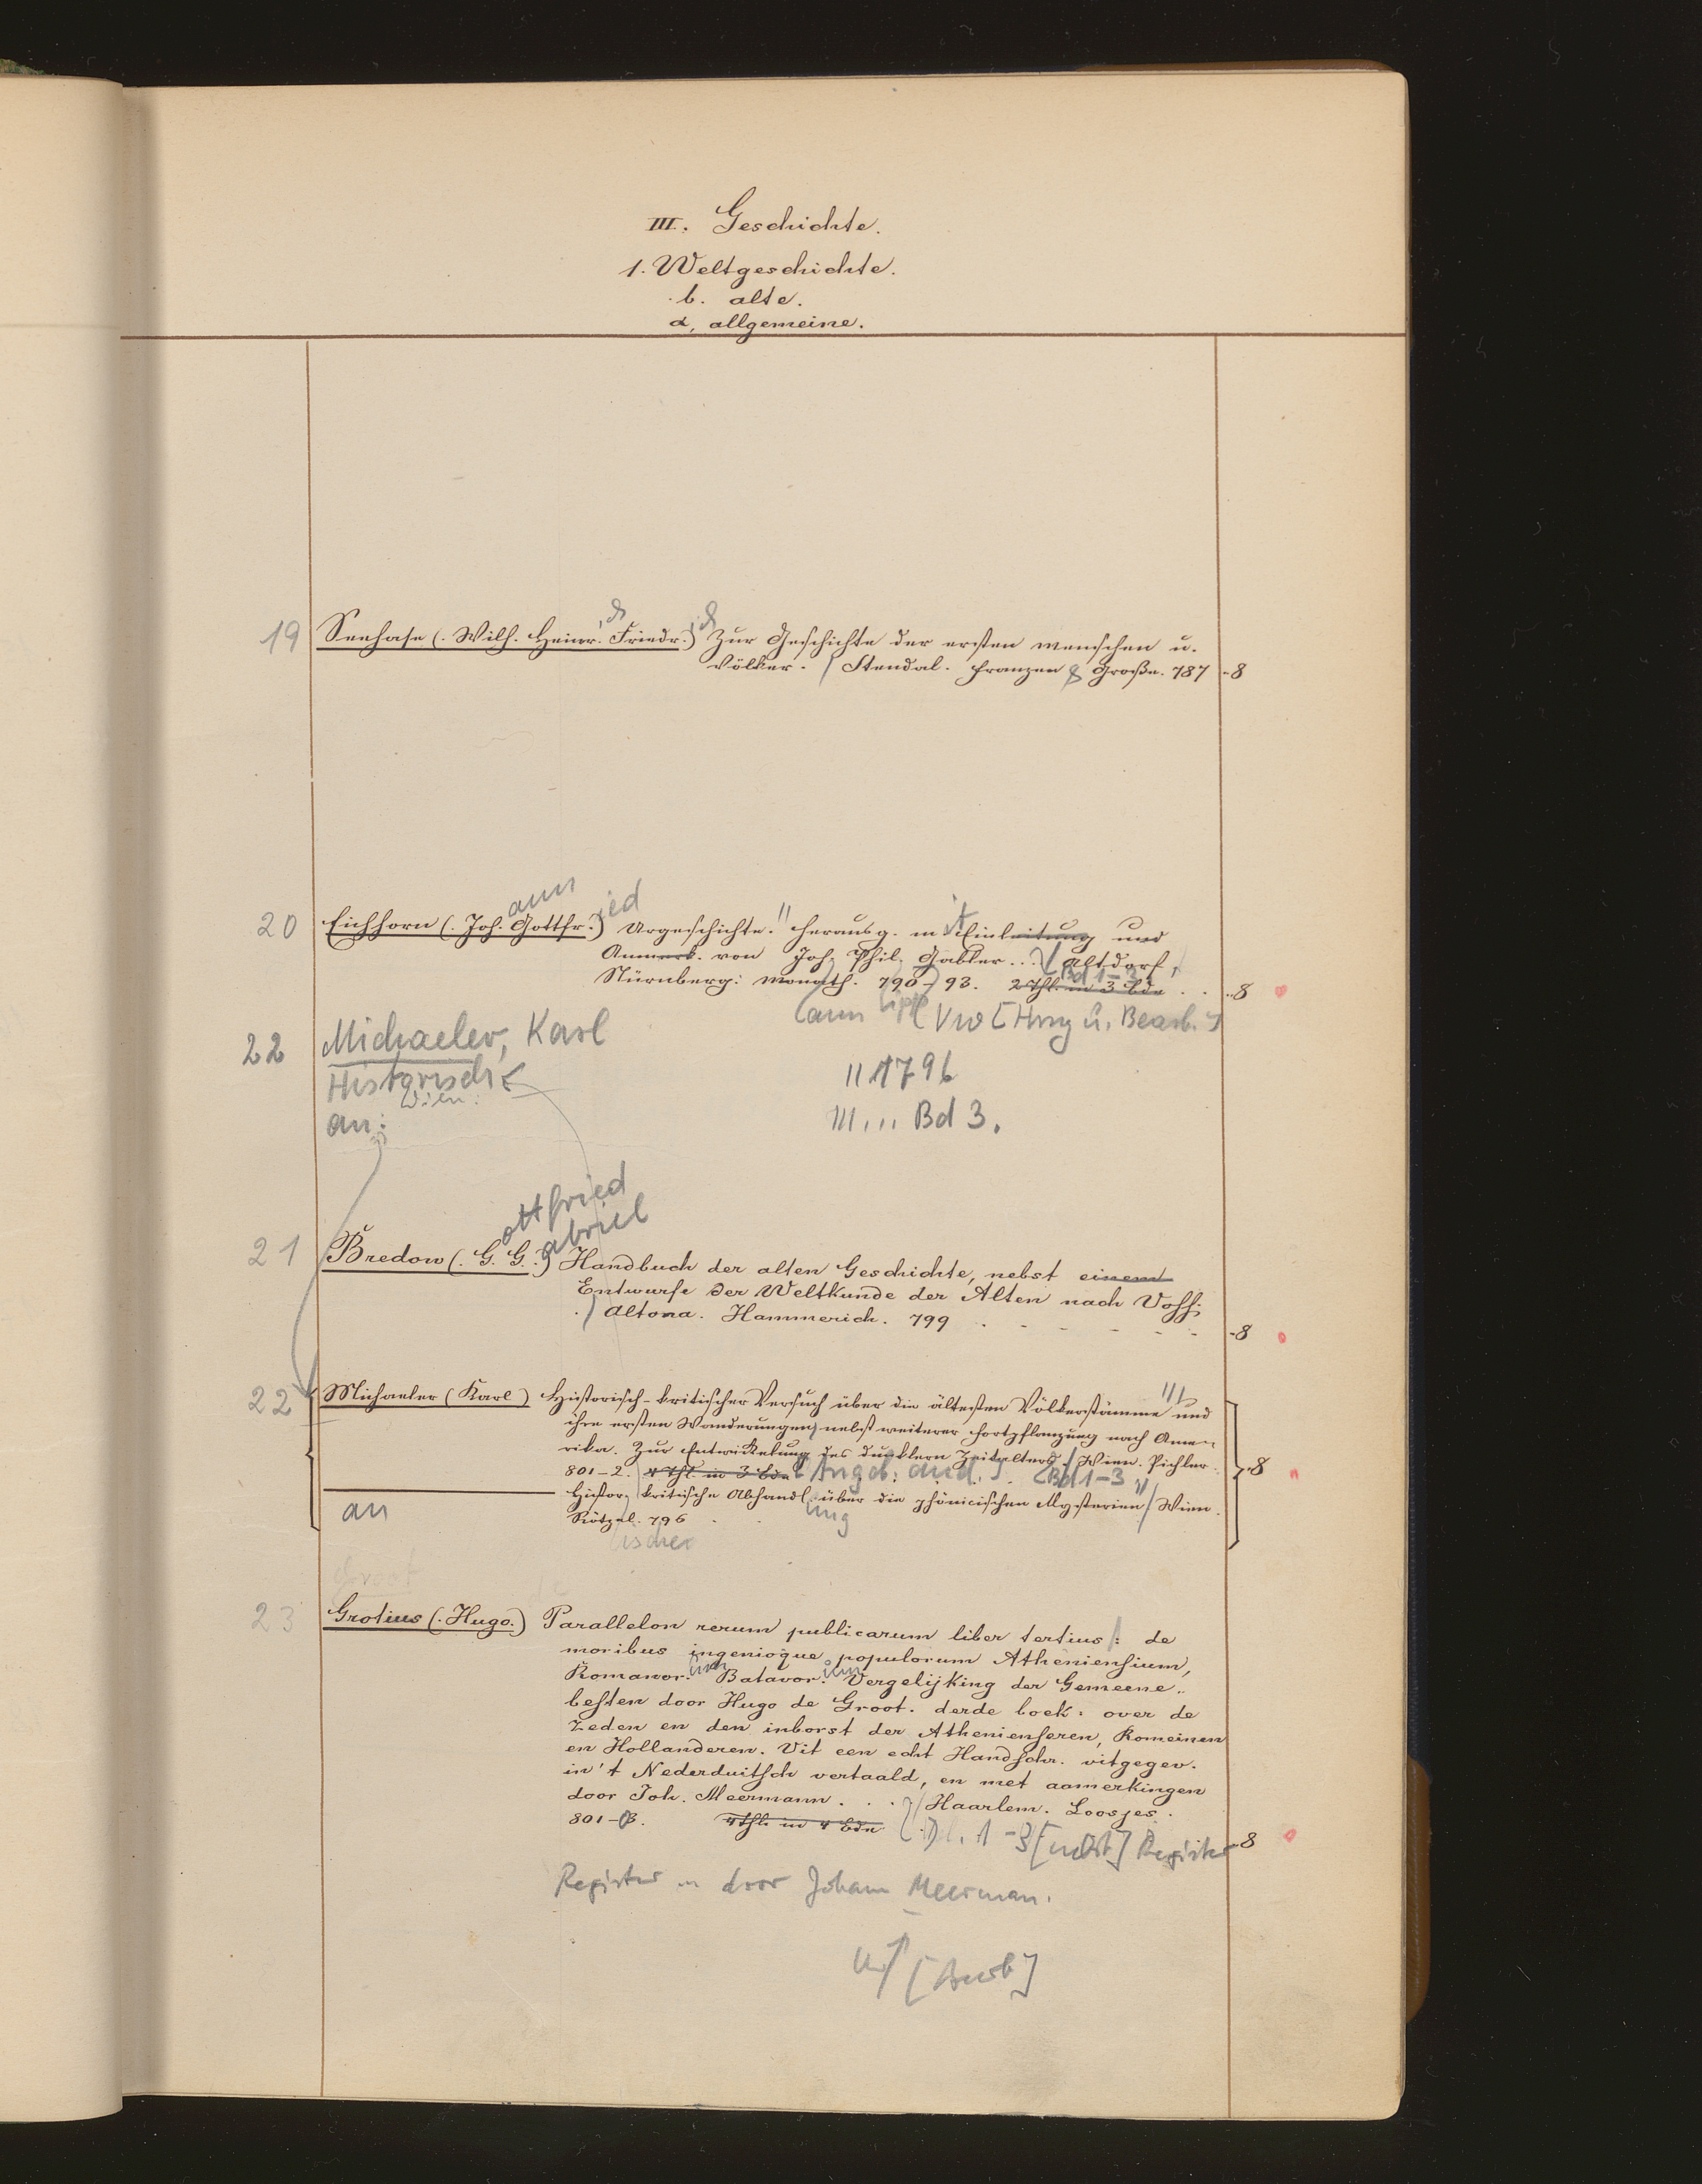 III. Geschichte.
1. Weltgeschichte.
b. alte.
α, allgemeine.
19 Seehase (. Wilh. Heinr. Friedr.) Zur Geschichte der ersten menschen u.
Völker. / Stendal. Franzen & Große. 787 -8
ann ied
20 Eichhorn (. Joh. Gottfr.) Urgeschichte. " herausg. mit Einleitung und
Anmerk. von Joh. Phil. Gabler ... / Altdorf,
Bd 1-3
Nürnberg: monath. 790-93. 2 Thl. in 3 Bde . . -8
ann lipp VW [Hrsg u. Bearb.]
22 Michaeler, Karl
Historisch II 1796
Wien:
an: III ... Bd 3.
ottfried
abriel
21 Bredow (. G. G.) Handbuch der alten Geschichte, nebst einem
Entwurfe der Weltkunde der Alten nach Voss.
/ Altona. Hammerich. 799 . - - - - - -8
22 Michaeler (Karl) Historisch-kritischer Versuch über die ältesten Völkerstämme und
ihre ersten Wanderungen, nebst weiterer Fortpflanzung nach Ame-
rika. Zur Entwickelung des dunklern Zeitalters. / Wien. Pichler.
801-2. 4 Thl. in 3 Bde Bd 1-3 -8
Histor. kritische Abhandl. über die phönicischen Mysterien / Wien.
an ung
Rötzel. 796
ischer
Groot
23 Grotius (. Hugo.) Parallelon rerum publicarum liber tertius: de
moribus ingenioque populorum Atheniensium,
um um
Romanor. Batavor. Vergelijking der Gemeene-
besten door Hugo de Groot. derde boek: over de
Zeden en den inborst der Athenienseren, Romeinen
en Hollanderen. Uit een echt Handschr. uitgegev.
in't Nederduitsch vertaald, en met aamerkingen
door Joh. Meermann . . . / Haarlem. Loosjes.
801-3. 4 Thl. in 4 Bde Dl. 1-3 [nebst] Register -8
Register door Johann Meerman.
[Bearb]